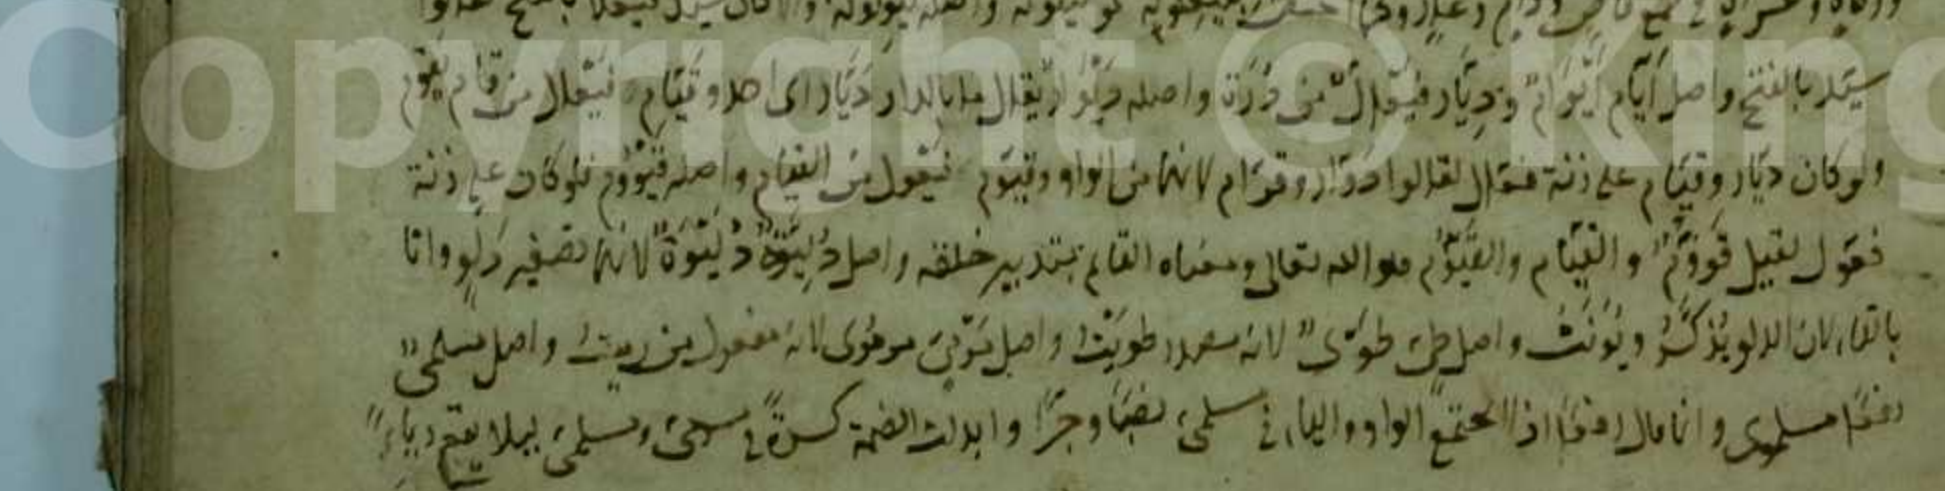 سيد بالفتح واصل أيّام أيوام وديّار فيعال من دُرت واصله ديوار يقال ما بالدار ديّار اى احد وقيّام فيعال من قام يقوم
ولو كان ديّار وقيّام على زنة فعّال لقالوا دوّار وقوّام لانهما من الواو وقيّوم فيعول من القيام واصله قيووم فلو كان على زنة
فعّول لقيل قوّوم والقيّام والقيّوم هو الله تعالى ومعناه القايم بتدبير خلقه واصل دُليّة دُليوة لانها تصغير دلو واتا
بالتاء لان الدلو يذكّر ويؤنث واصل طىّ طوى لانه مصدر طويت واصل مرمىّ مرموى لانه مفعول من رميت واصل مسلمىّ
رفعا مسلموى وانما قال رفعا اذ لا تجتمع الواو والياء فى مسلمىّ نصبا وجرّا وابدلت الضمة كسرة فى مرمىّ ومسلمىّ ليلا يقع ياء
Copyright © King